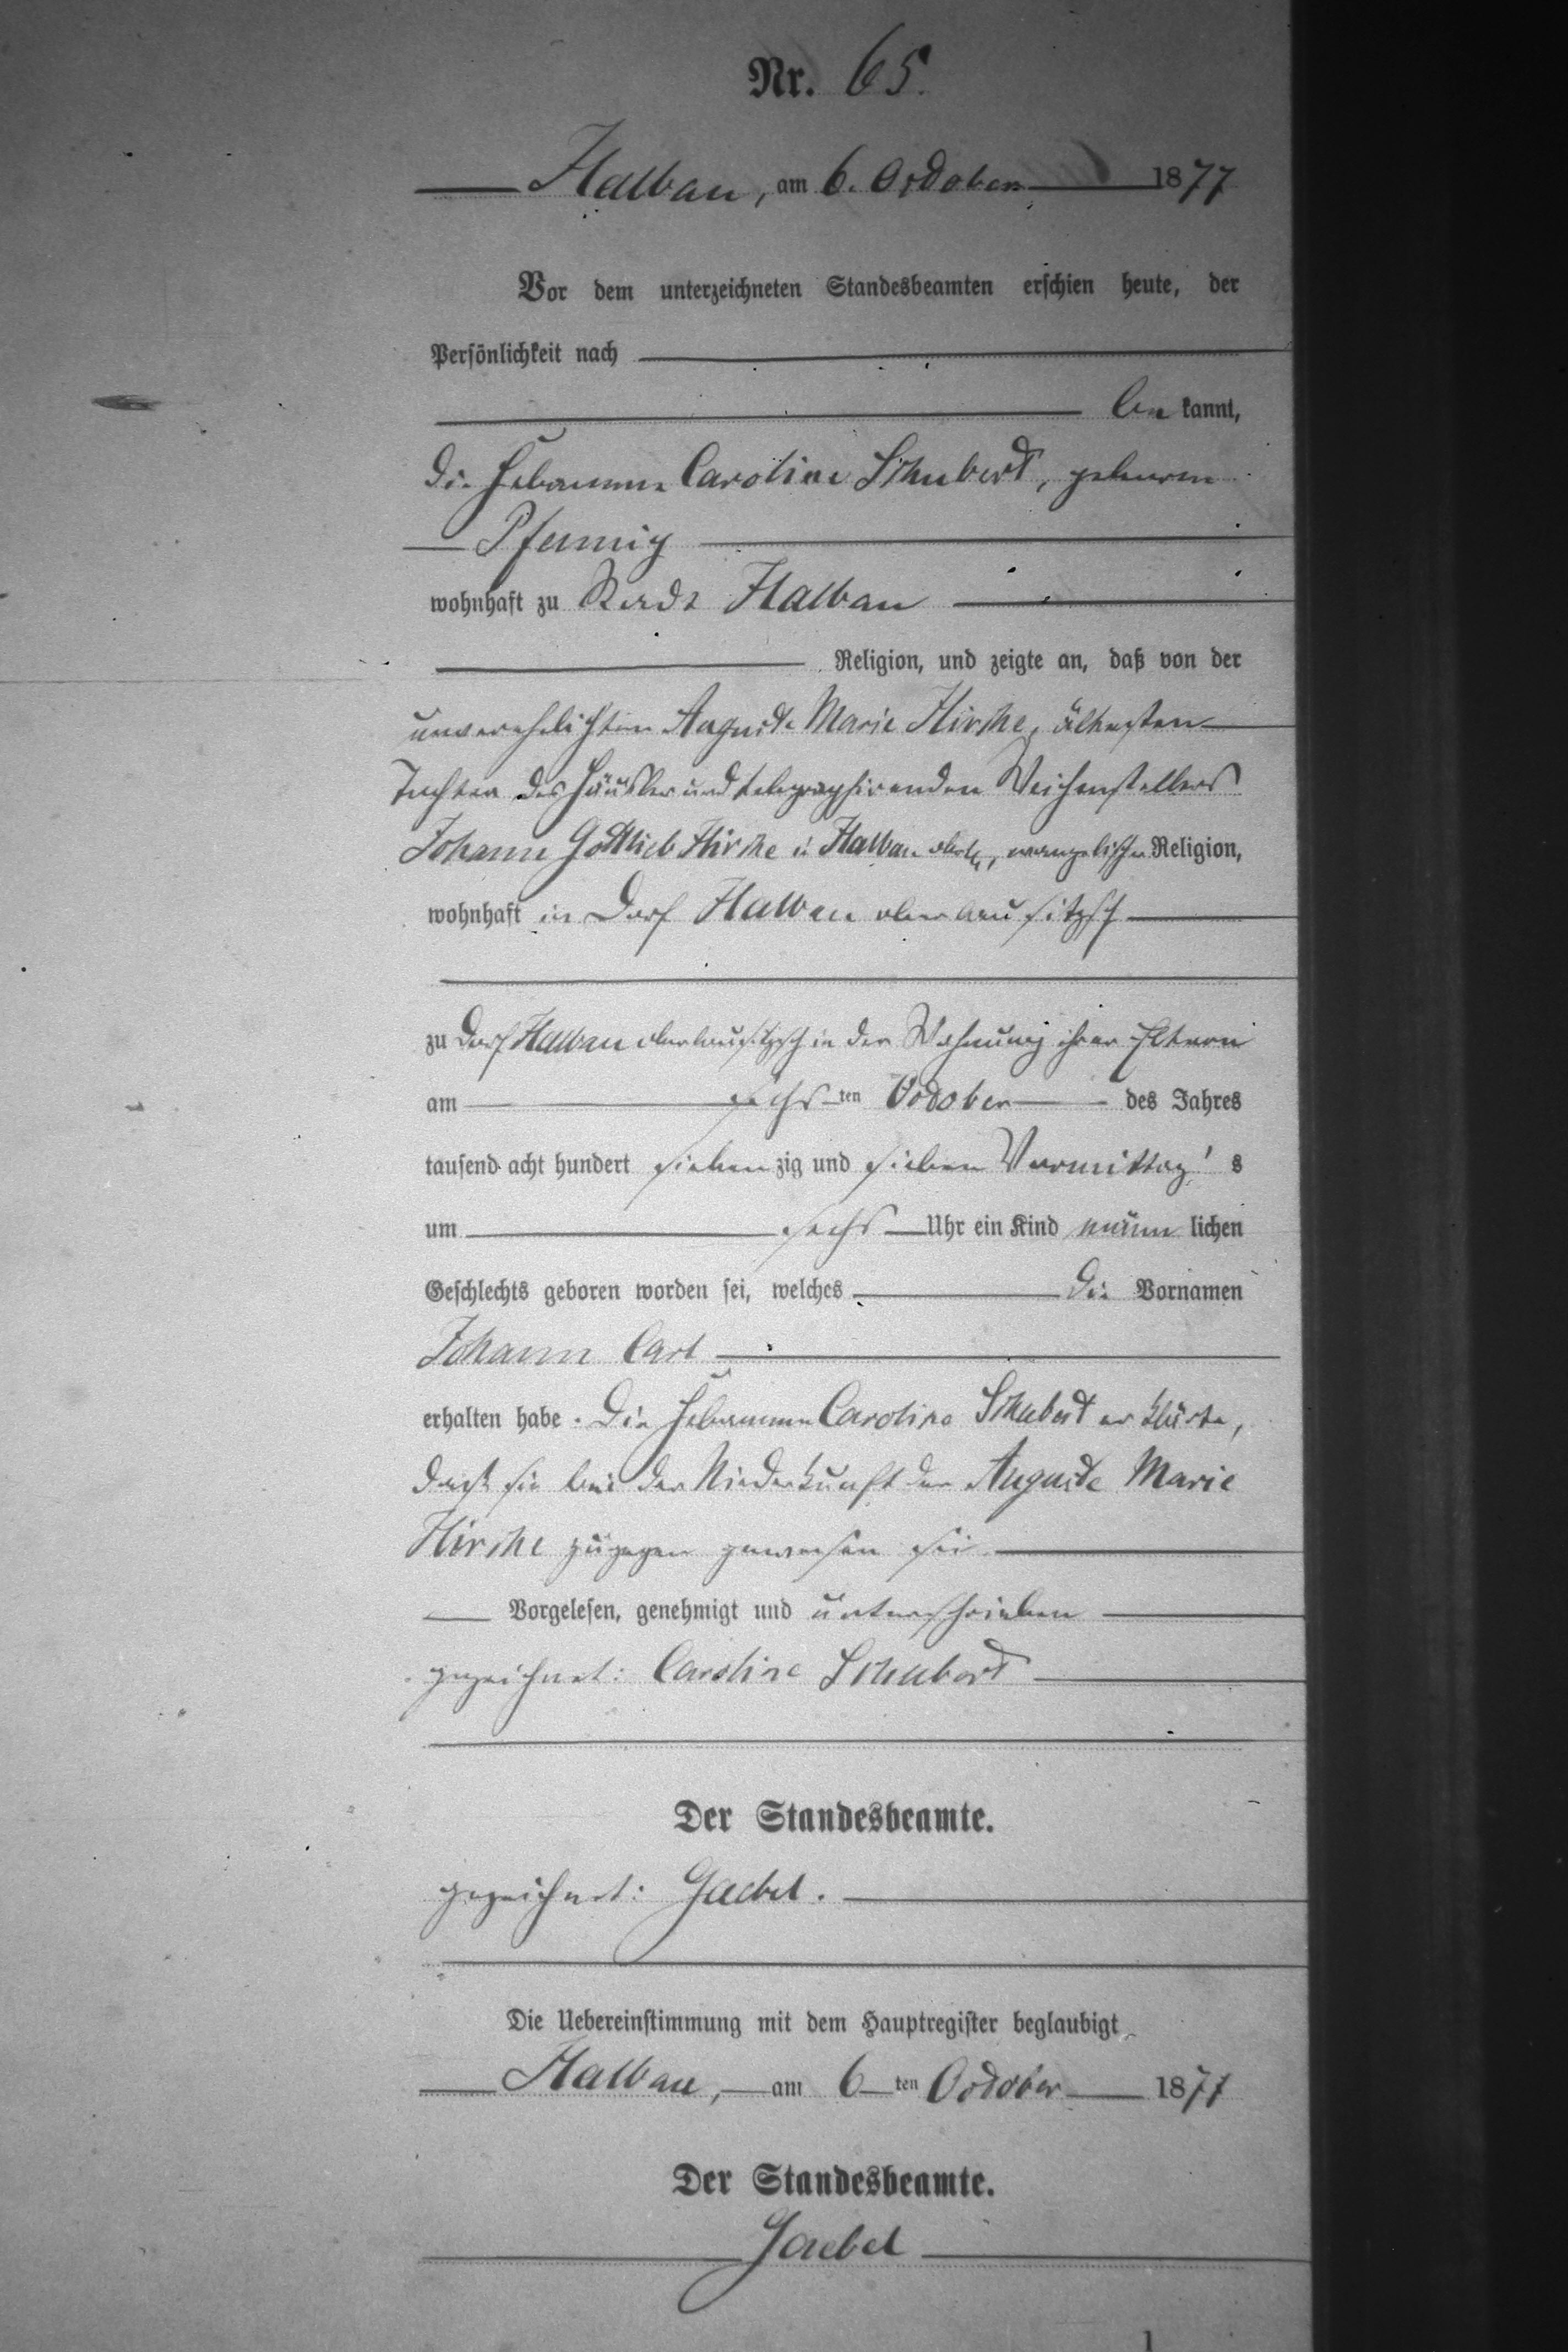 Nr. 65.
Halbau, am 6. October 1877
Vor dem unterzeichneten Standesbeamten erschien heute, der
Persönlichkeit nach
be kannt,
die Hebamme Caroline Schubert, geborene
Pfennig
wohnhaft zu Stadt Halbau
Religion, und zeigte an, daß von der
unverehelichten Auguste Marie Hirche, ältesten
Tochter des Häusler und telegraphirenden Weichenstellers
Johann Gottlieb Hirche in Halbau oberls, evangelischer Religion,
wohnhaft in Dorf Halbau oberlausitzsch
zu Dorf Halbau oberlausitzsch in der Wohnung ihrer Eltern
am sechsten October des Jahres
tausend acht hundert siebenzig und sieben Vormittag's
um sechs Uhr ein Kind männlichen
Geschlechts geboren worden sei, welches die Vornamen
Johann Carl
erhalten habe. Die Hebamme Caroline Schubert erklärte,
daß sie bei der Niederkunft der Auguste Marie
Hirche zugegen gewesen sei
Vorgelesen, genehmigt und unterschrieben
gezeichnet: Caroline Schubert
Der Standesbeamte.
gezeichnet: Gaebel.
Die Uebereinstimmung mit dem Hauptregister beglaubigt
Halbau, am 6ten October 1877
Der Standesbeamte.
Gaebel
1